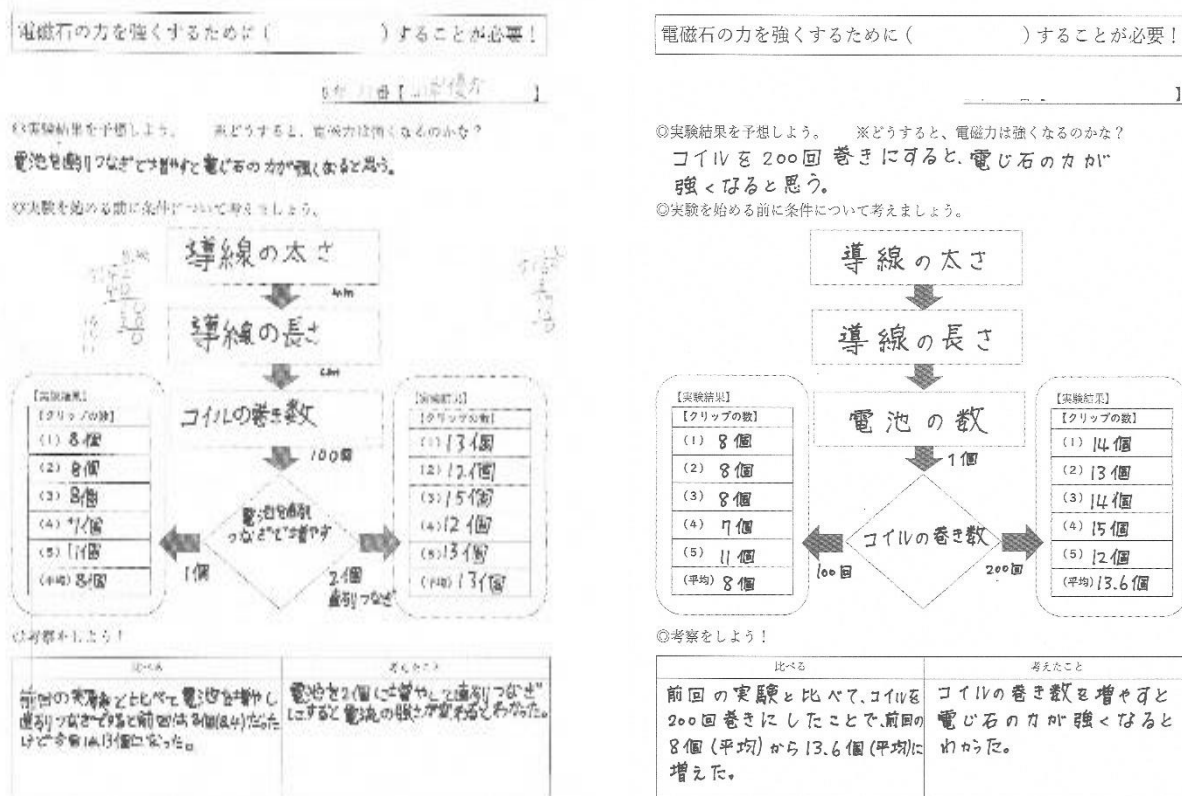 電磁石の力を強くするために (　　　　) することが必要！
◎実験結果を予想しよう。　※どうすると、電磁力は強くなるのかな？
電池を直列つなぎで増やすと電じ石の力が強くなると思う。
◎実験を始める前に条件について考えましょう。
導線の太さ
導線の長さ
コイルの巻き数
100回
電池を直列
つなぎで増やす
1個
2個
直列つなぎ
【実験結果】
【クリップの数】
(1) 8個
(2) 8個
(3) 8個
(4) 7個
(5) 11個
(平均) 8個
【実験結果】
【クリップの数】
(1) 13個
(2) 12個
(3) 15個
(4) 12個
(5) 13個
(平均) 13個
◎考察をしよう！
比べる
考えたこと
前回の実験と比べて電池を増やし
直列つなぎですると前回は8個(8.4)だった
けど今回は13個になった。
電池を2個に増やして直列つなぎ
にすると電流の強さが変わるとわかった。
電磁石の力を強くするために (　　　　) することが必要！
】
◎実験結果を予想しよう。　※どうすると、電磁力は強くなるのかな？
コイルを200回巻きにすると、電じ石の力が
強くなると思う。
◎実験を始める前に条件について考えましょう。
導線の太さ
導線の長さ
電池の数
1個
コイルの巻き数
100回
200回
【実験結果】
【クリップの数】
(1) 8個
(2) 8個
(3) 8個
(4) 7個
(5) 11個
(平均) 8個
【実験結果】
【クリップの数】
(1) 14個
(2) 13個
(3) 14個
(4) 15個
(5) 12個
(平均) 13.6個
◎考察をしよう！
比べる
考えたこと
前回の実験と比べて、コイルを
200回巻きにしたことで、前回の
8個(平均)から13.6個(平均)に
増えた。
コイルの巻き数を増やすと
電じ石の力が強くなると
わかった。